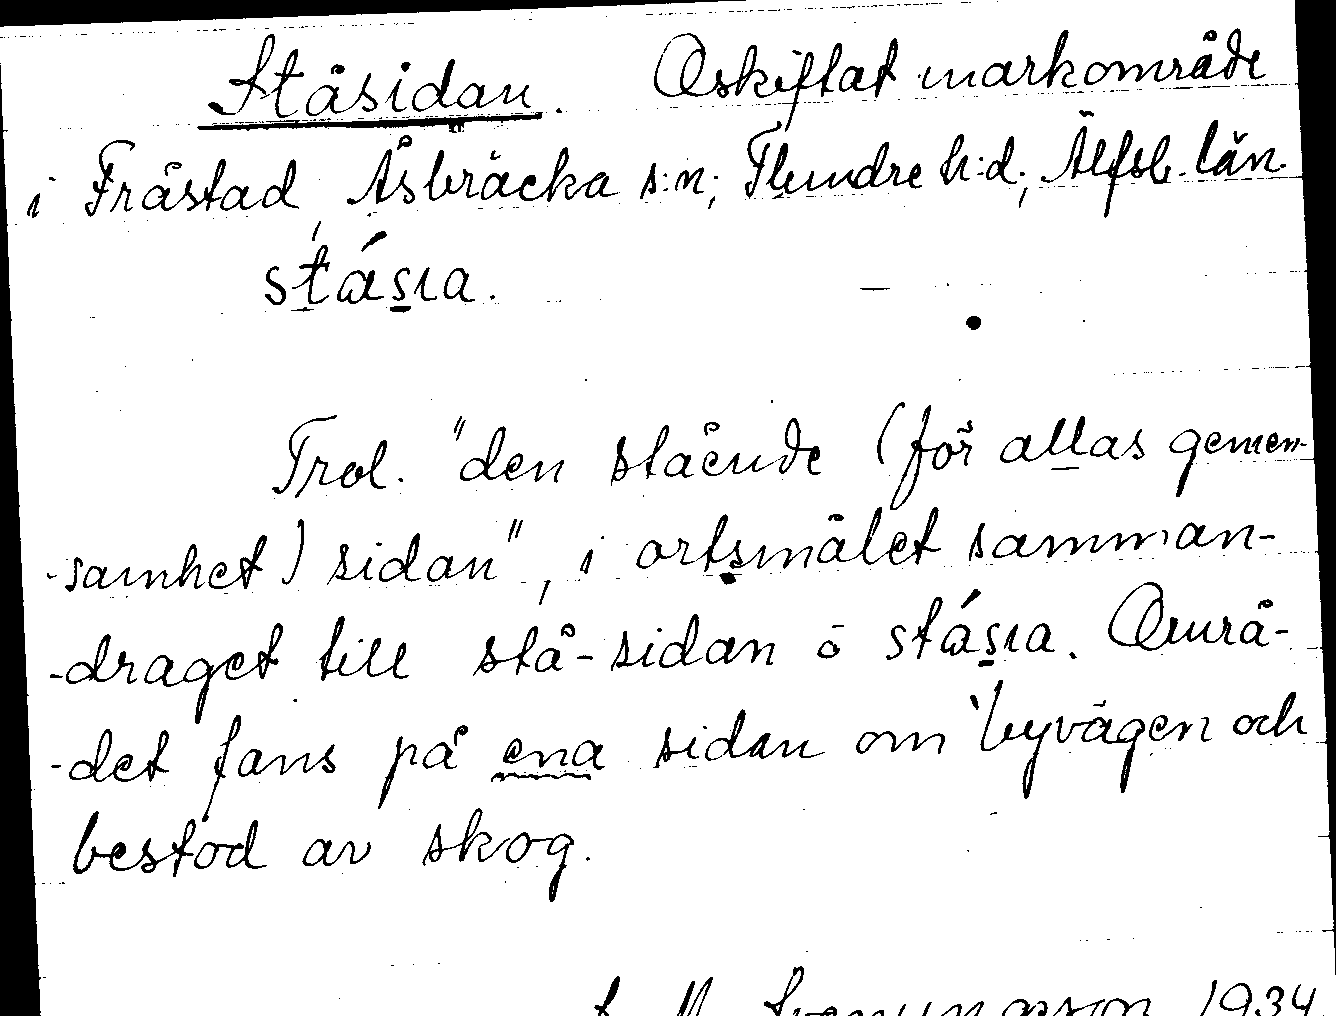 Ståsidan. Oskiftat markområde
i Fråstad, Åsbräcka s:n; Flundre h:d; Älfsb. län.
stásıa.
Trol. "den stående (för allas gemen-
-samhet) sidan", i ortsmålet samman-
-draget till stå-sidan ō stásıa. Områ-
-det fans på ena sidan om byvägen och
bestod av skog.
1934.